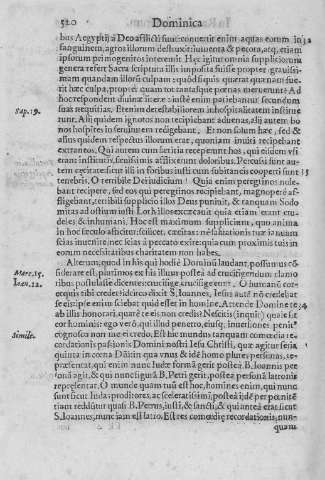 520 Dominica
bus Aegyptii à Deo afflicti sunt: conuertit enim aquas eorum in
sanguinem, agros illorum destruxit, iuuenta & pecora, atq; etiam
ipsorum primogenitos interemit. Hęc igitur omnia suppliciorum
genera refert Sacra scriptura illis imposita fuisse propter grauissi-
mam quandam illorũ culpam: quod si quis quærat quænam fue-
rit hæc culpa, propter quam tot tantasque pœnas meruerunt? Ad
hoc respondent diuinæ literæ: iustè enim patiebantur secundum
suas nequitias. Etenim detestabiliorem inhospitalitatem institue
Sap. 19.
runt. Alij quidem ignotos non recipiebant aduenas, alij autem bo
nos hospites in seruitutem redigebant. Et non solum hæc, sed &
alius quidem respectus illorum erat, quoniam inuiti recipiebant
extraneos. Qui autem cum lætitia receperunt hos, qui eisdem vsi
erant iustitiis, sæuissimis afflixerunt doloribus. Percussi sunt au-
tem cæcitate: sicut illi in foribus iusti cum subitaneis cooperti sunt
tenebris. O terribile Dei iudicium! Quia enim peregrinos nole-
bant recipere, sed eos qui peregrinos recipiebant, magnoperè af-
fligebant, terribili supplicio illos Deus puniit, & tanquam Sodo
mitas ad ostium iusti Lot illos excæcauit quia etiam erant crude-
les & inhumani. Hoc est maximum supplicium, quo anima
in hoc sæculo afficitur:
scias inuenire, nec scias à peccato exire: quia cum proximis tuis in
eorum necessitatibus charitatem non habes.
Alterum, quod in his qui hodie Dominũ laudant, possumus cõ
Marc. 15.
siderare est: plurimos ex his illum postea ad crucifigendum clamo
Ioan. 12.
ribus postulasse dicentes: crucifige crucifige eum. O humanũ cor-
etquis tibi credet? dicit S. Ioannes, Iesus autē nõ credebat
se eis: ipse enim sciebat quid esset in homine. Attende Domine
ab illis honorari, quare te eis non credis? Nescitis (inquit) quale sit
cor hominis: ego verò qui illud penetro, eiusq; inuentiones penit9
Simile.
cognosco non me ei credo. Est hic mundus tanquam comœdia re-
cordationis passionis Domini nostri Iesu Christi, quæ agitur feria
quinta in cœna Dñi: in qua vnus & idẽ homo plures personas, re-
præsentat, qui enim nunc Iudæ formã gerit postea B. Ioannis per
sonã agit, & qui nunc figurã B. Petri gerit, postea personã latronis
repræsentat. O munde quam tu es hoc, homines enim, qui nunc
sunt sicut Iudas proditores, ac sceleratissimi, postea idẽ per pœnitē
tiam reddũtur quasi B. Petrus, iusti, & sancti, & qui antea erat sicut
S. Ioannes, nunc iam est latro. Est res comœdiæ recordationis, nun-
quam